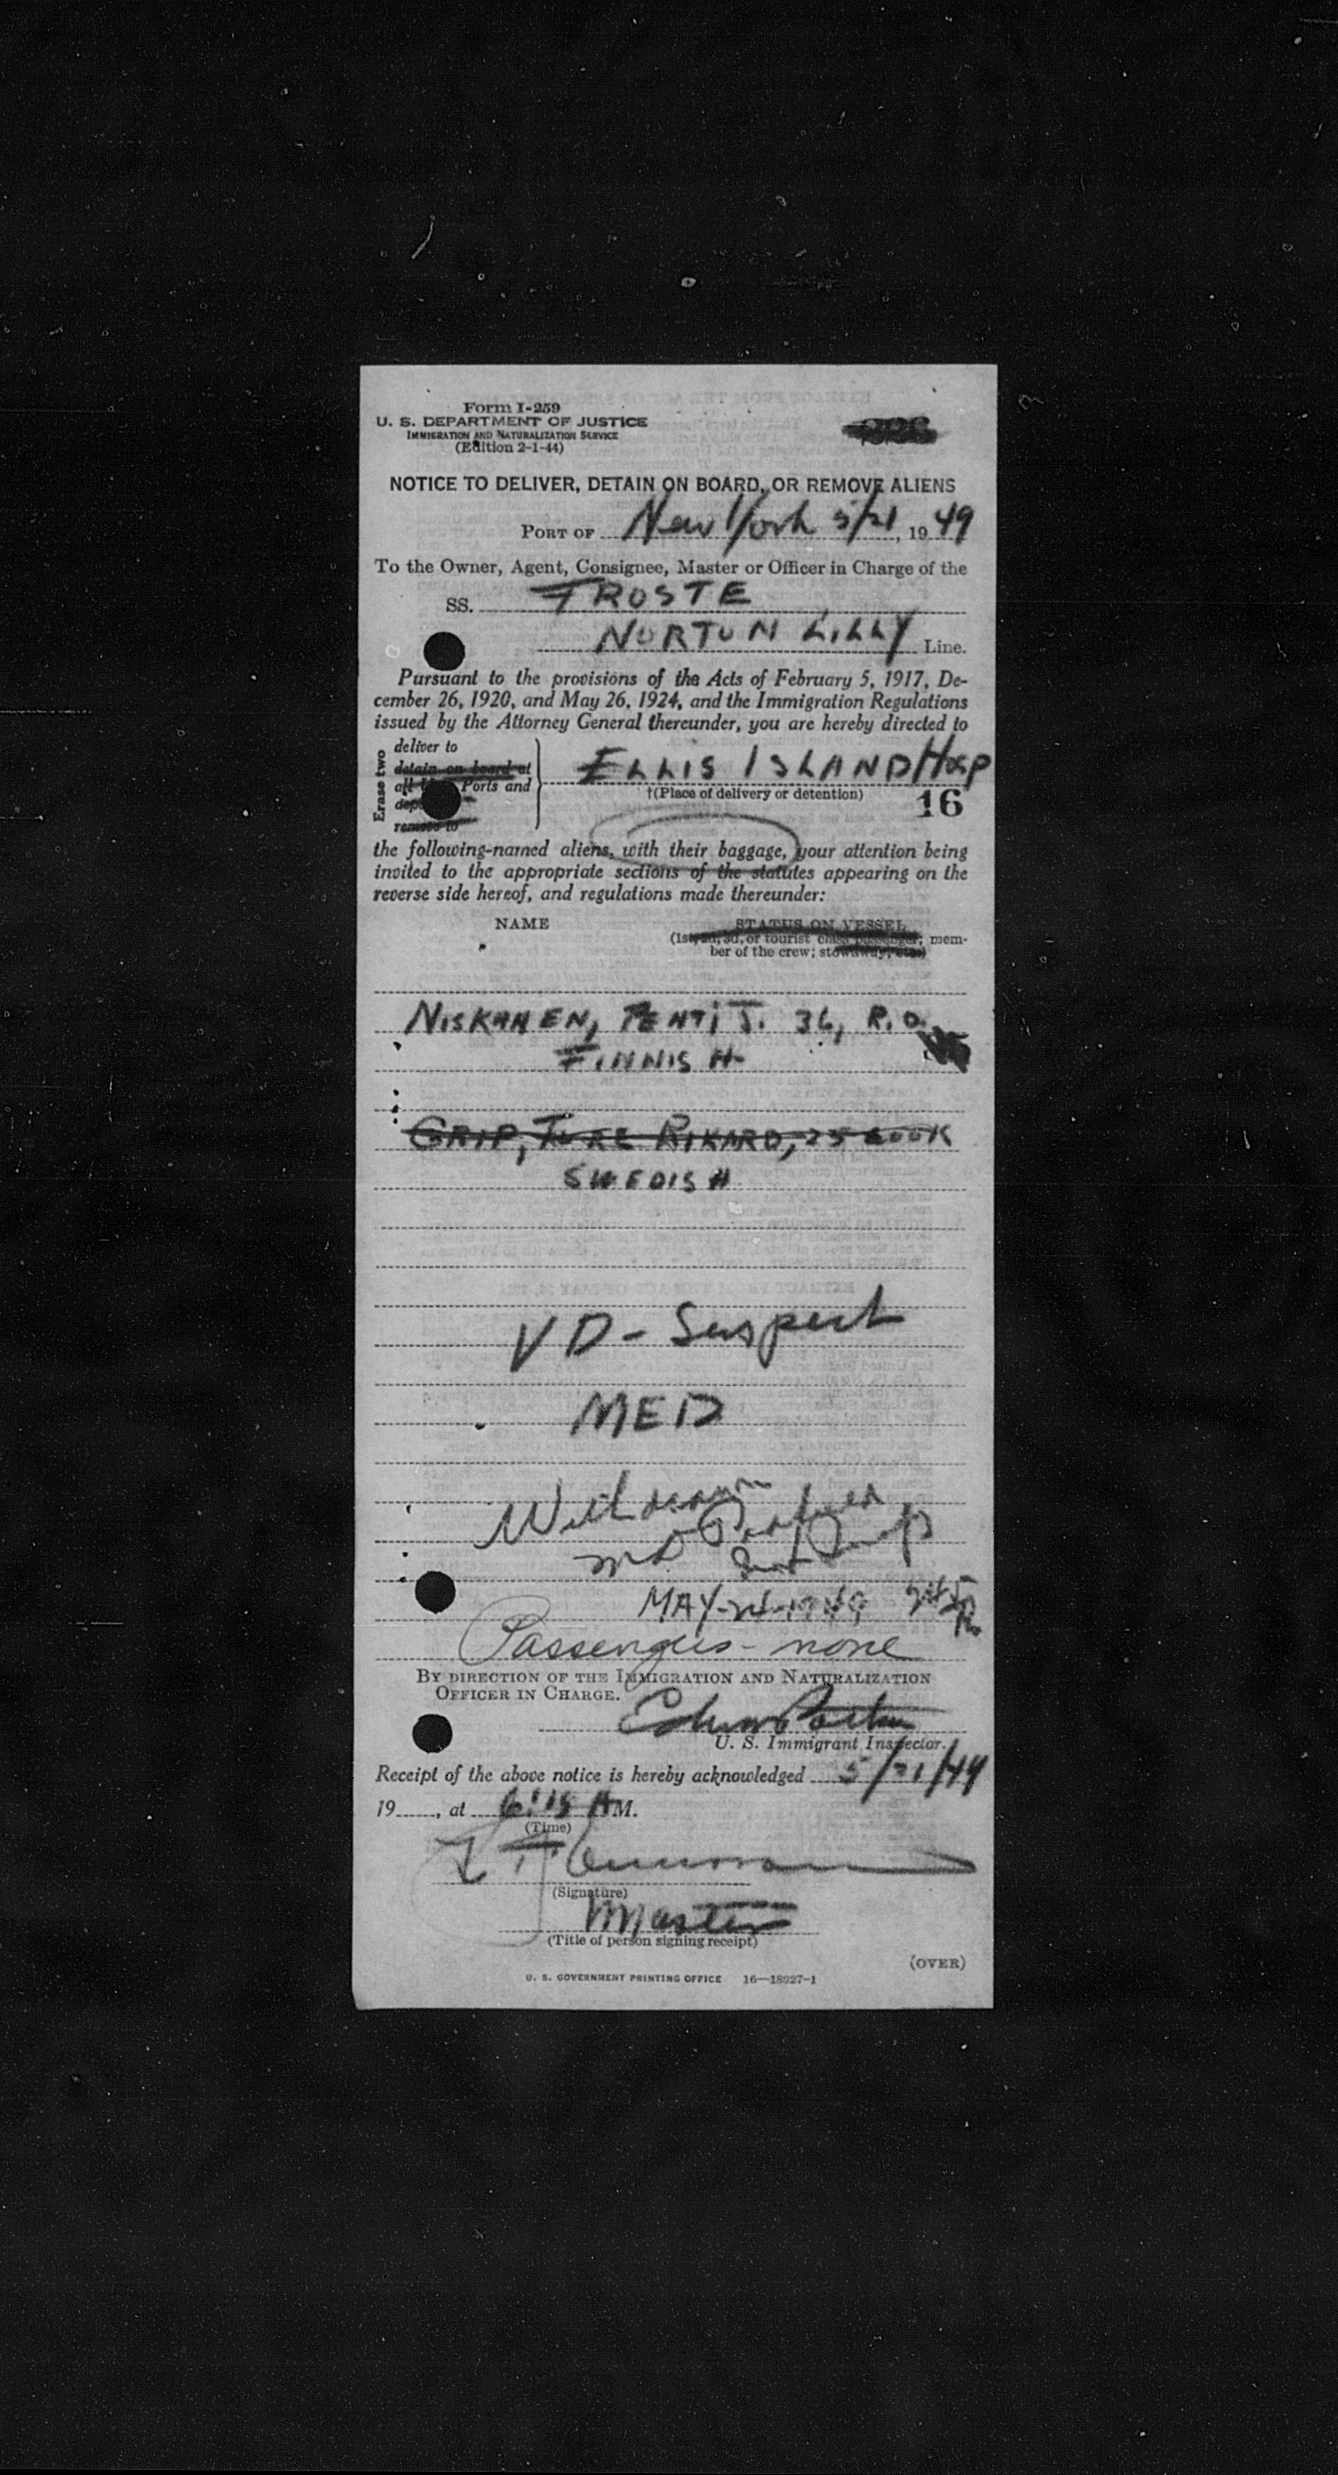 Form I-259
U. S. DEPARTMENT OF JUSTICE
IMMIGRATION AND NATURALIZATION SERVICE
(Edition 2-1-44)
NOTICE TO DELIVER, DETAIN ON BOARD, OR REMOVE ALIENS
PORT OF New York 5/21, 1949
To the Owner, Agent, Consignee, Master or Officer in Charge of the
SS. FROSTE
NORTON LILLY Line.
Pursuant to the provisions of the Acts of February 5, 1917, De-
cember 26, 1920, and May 26, 1924, and the Immigration Regulations
issued by the Attorney General thereunder, you are hereby directed to
Erase two
deliver to
detain on board at
all Ports and
remove to
ELLIS ISLAND Hosp
†(Place of delivery or detention)
16
the following-named aliens, with their baggage, your attention being
invited to the appropriate sections of the statutes appearing on the
reverse side hereof, and regulations made thereunder:
NAME STATUS ON VESSEL
(1st, 2d, 3d, or tourist class passenger; mem-
ber of the crew; stowaway, etc.)
NISKANEN, PENTI J. 36, R.O.
FINNISH
GRIP, TURE RIKARD, 25 COOK
SWEDISH
VD - Suspect
MED
Withdrawn
MAY-24-1949
Passengers - none
BY DIRECTION OF THE IMMIGRATION AND NATURALIZATION
OFFICER IN CHARGE.
U. S. Immigrant Inspector.
Receipt of the above notice is hereby acknowledged 5/21/49
19____, at 6:15 AM.
(Time)
(Signature)
Master
(Title of person signing receipt)
(OVER)
U. S. GOVERNMENT PRINTING OFFICE 16—18027-1